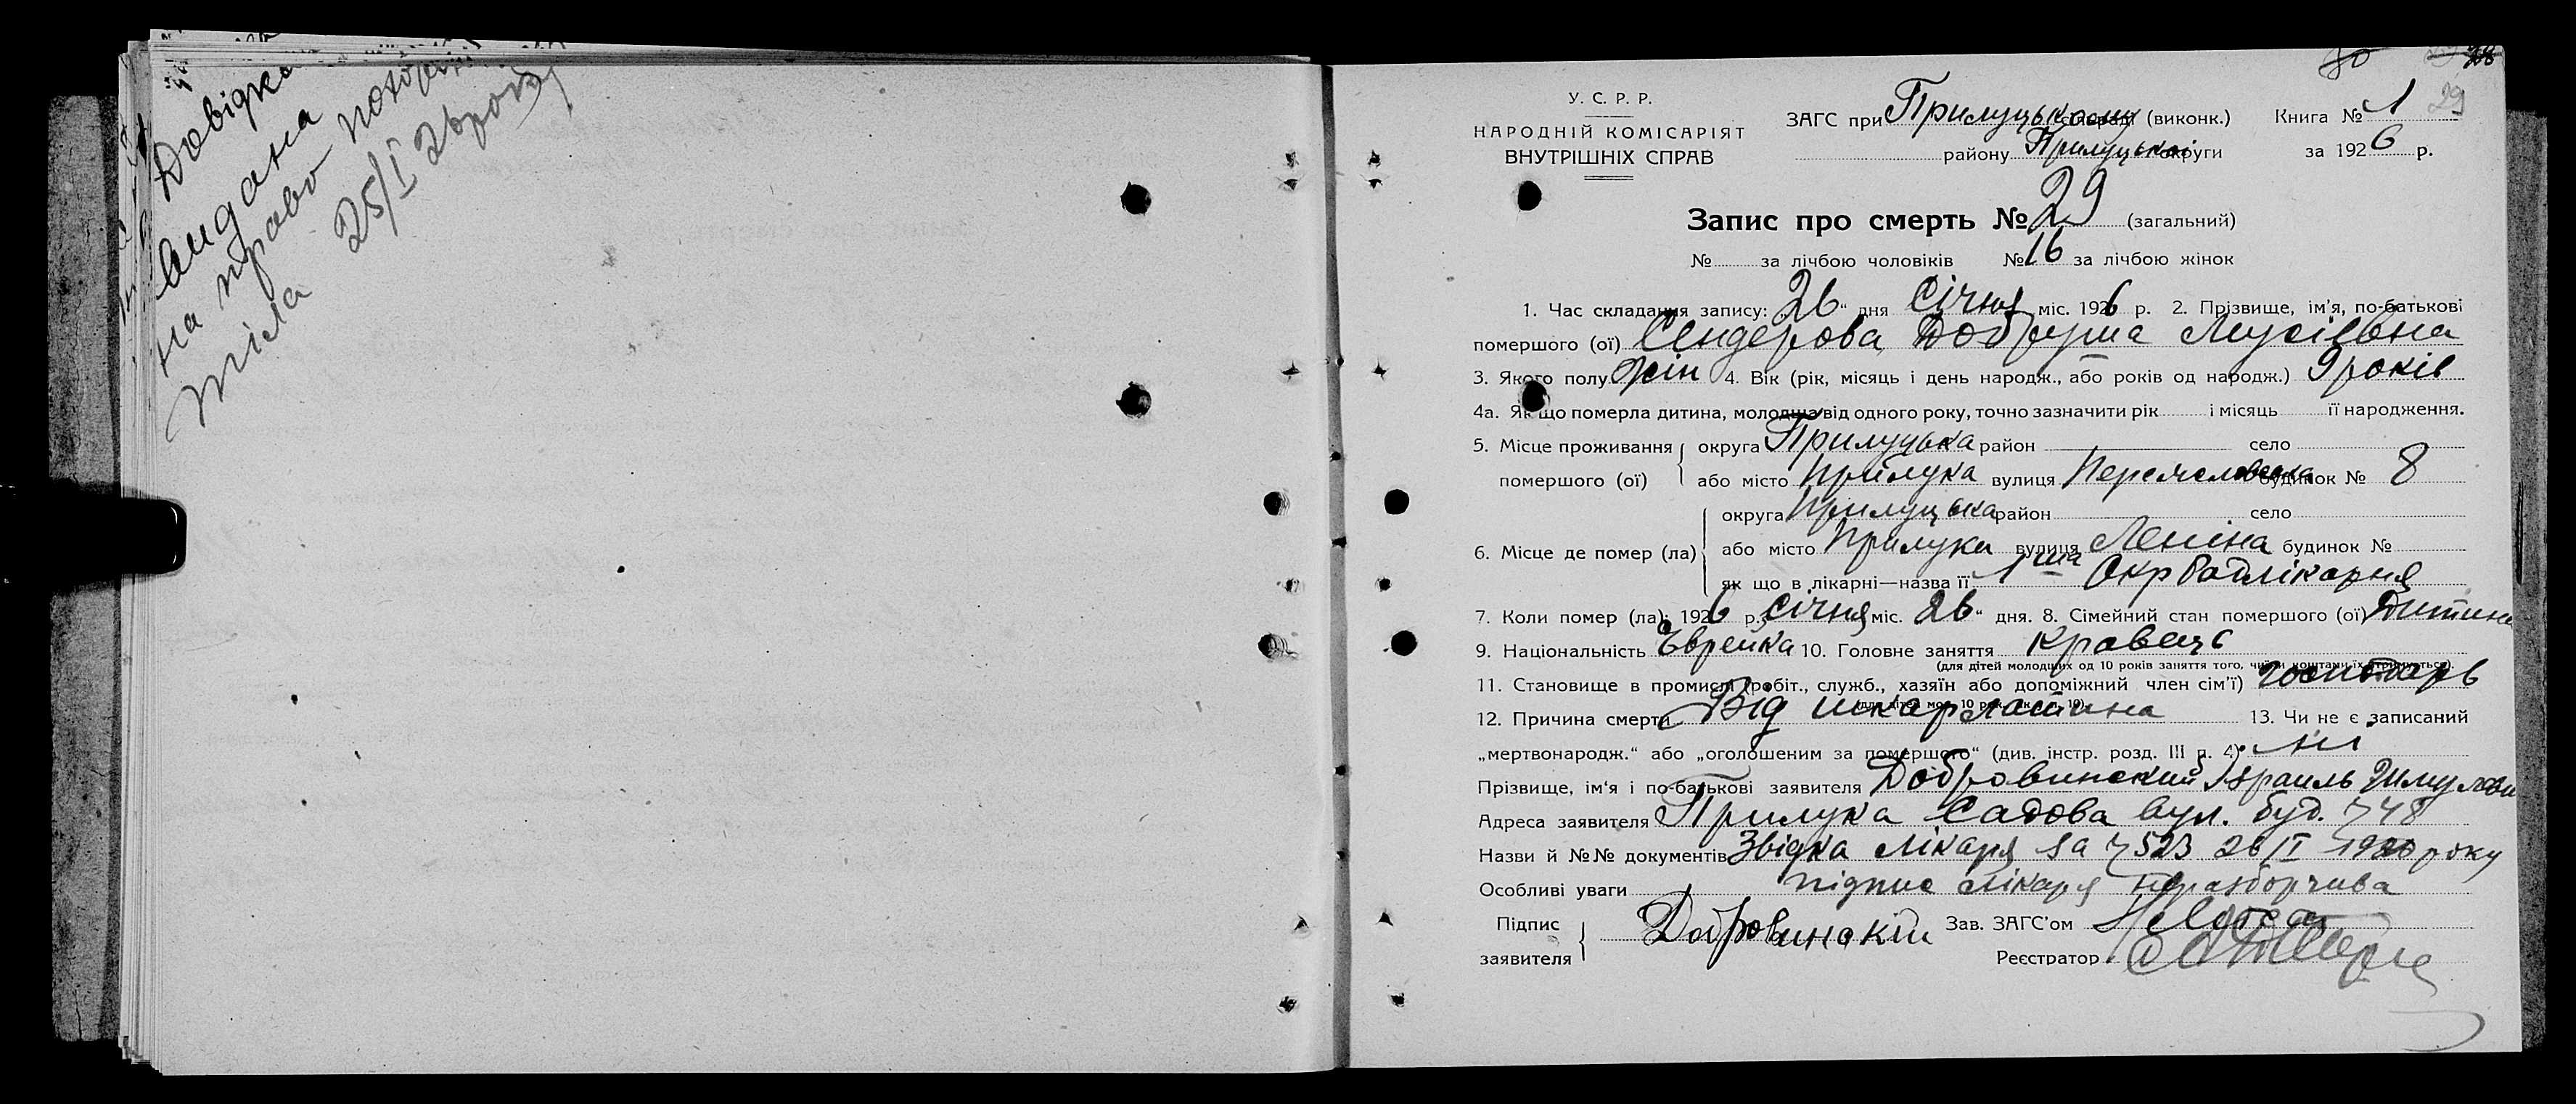 Довідка
видана
на право похорон
тіла 25/I 26 року
У. С. Р. Р.
НАРОДНІЙ КОМІСАРІЯТ
ВНУТРІШНІХ СПРАВ
ЗАГС при Прилуцькому (виконк.)
району Прилуцької округи
Книга № 1
29
за 1926 р.
Запис про смерть № 29 (загальний)
№ за лічбою чоловіків № 16 за лічбою жінок
1. Час складання запису: 26 " дня Січня міс. 1926 р. 2. Прізвище, ім'я, по-батькові
помершого (ої) Сендерова Добруша Мусіївна
3. Якого полу жін 4. Вік (рік, місяць і день народж., або років од народж.) 9 років
4а. Як що померла дитина, молодша від одного року, точно зазначити рік і місяць її народження.
5. Місце проживання помершого (ої) округа Прилуцька район село
або місто Прилука вулиця будинок № 8
6. Місце де помер (ла) округа Прилуцька район село
або місто Прилука вулиця Леніна будинок №
як що в лікарні—назва її 1ша Окррадлікарня
7. Коли помер (ла): 1926 р. Січня міс. 26 " дня. 8. Сімейний стан помершого (ої) Дитина
9. Національність Єврейка 10. Головне заняття Кравець
(для дітей молодших од 10 років заняття того, чиїми коштами їх утримується).
11. Становище в промислі (робіт., служб., хазяїн або допоміжний член сім'ї) господарь
12. Причина смерти Від шкарлатина 13. Чи не є записаний
„мертвонародж." або „оголошеним за помершого" (див. інстр. розд. III п. 4) ні
Прізвище, ім'я і по-батькові заявителя Добровинский Ізраиль
Адреса заявителя Прилука Садова вул. буд. 48
Назви й №№ документів Звідка лікаря за 523 26/I 1926 року
Особливі уваги підпис лікаря неразборчива
Підпис заявителя Добровинскій Зав. ЗАГС'ом
Реєстратор